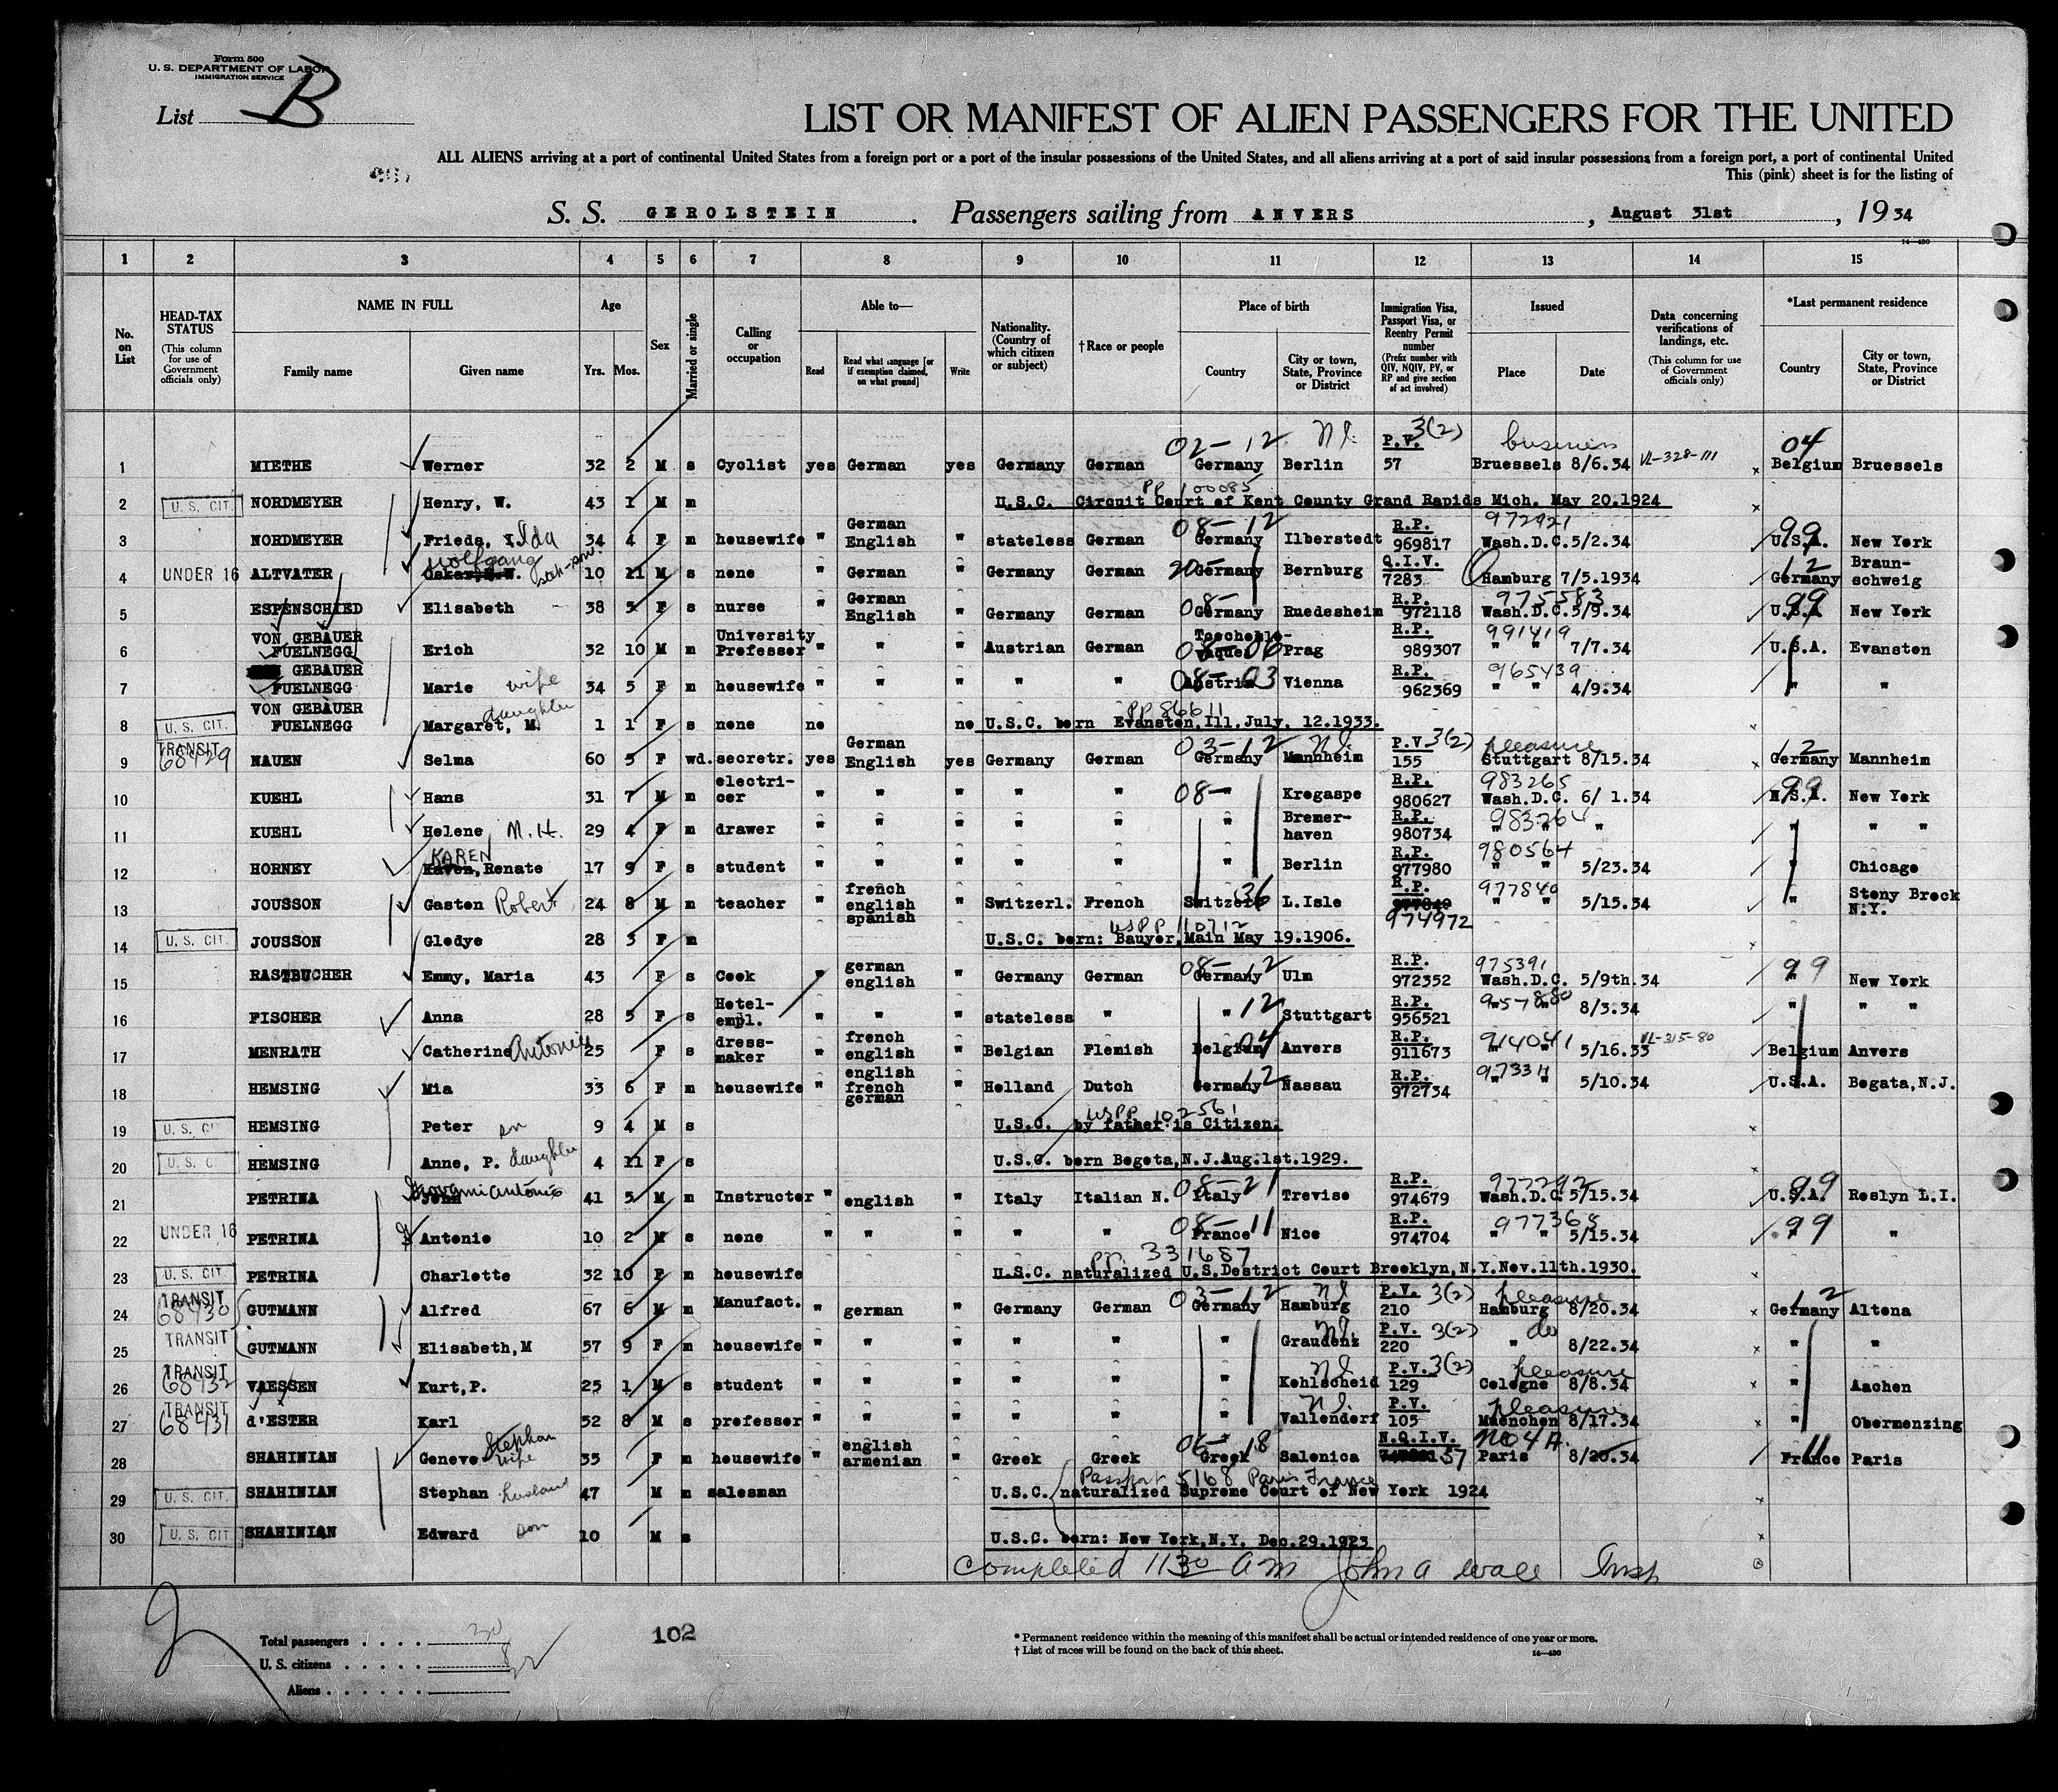 Form 500
U. S. DEPARTMENT OF LABOR
IMMIGRATION SERVICE
List B
LIST OR MANIFEST OF ALIEN PASSENGERS FOR THE UNITED
ALL ALIENS arriving at a port of continental United States from a foreign port or a port of the insular possessions of the United States, and all aliens arriving at a port of said insular possessions from a foreign port, a port of continental United
This (pink) sheet is for the listing of
S. S. GEROLSTEIN . Passengers sailing from ANVERS , August 31st , 19 34
14—480
1 2 3 4 5 6 7 8 9 10 11 12 13 14 15
No. on List HEAD-TAX STATUS (This column for use of Government officials only) NAME IN FULL Family name Given name Age Yrs. Mos. Sex Married or single Calling or occupation Able to— Read Read what language [or if exemption claimed, on what ground] Write Nationality. (Country of which citizen or subject) †Race or people Place of birth Country City or town, State, Province or District Immigration Visa, Passport Visa, or Reentry Permit number (Prefix number with QIV, NQIV, PV, or RP and give section of act involved) Issued Place Date Data concerning verifications of landings, etc. (This column for use of Government officials only) *Last permanent residence Country City or town, State, Province or District
02-12 P.V. 3(2) business 04
1 MIETHE Werner 32 2 M s Cyclist yes German yes Germany German Germany Berlin 57 Bruessels 8/6.34 VL-328-111 Belgium Bruessels
PP 100085
2 U. S. CIT. NORDMEYER Henry, W. 43 1 M m U.S.C. Circuit Court of Kent County Grand Rapids Mich. May 20.1924
08-12 R.P. 972921 99
3 NORDMEYER Frieda, Ida 34 4 F m housewife " German English " stateless German Germany Ilberstedt 969817 Wash.D.C.5/2.34 U.S.A. New York
Wolfgang step-son. 20- Q.I.V. 12
4 UNDER 16 ALTVATER 10 11 M s none " German " Germany German Germany Bernburg 7283 Hamburg 7/5.1934 Germany Braunschweig
08- R.P. 975583 99
5 ESPENSCHIED Elisabeth 38 5 F s nurse " German English " Germany German Germany Ruedesheim 972118 Wash.D.C.5/9.34 U.S.A New York
R.P. 991419
6 VON GEBAUER FUELNEGG Erich 32 10 M m University Professor " " " Austrian German 08-06 Prag 989307 " " 7/7.34 U.S.A. Evanston
R.P. 965439
7 GEBAUER FUELNEGG Marie wife 34 5 F m housewife " " " " " Austria 08-03 Vienna 962369 " " 4/9.34 " "
daughter PP 86611
8 U. S. CIT. VON GEBAUER FUELNEGG Margaret, M. 1 1 F s none no no U.S.C. born Evanston,Ill.July. 12.1933.
TRANSIT 03-12 P.V. 3(2) pleasure 12
9 68429 NAUEN Selma 60 5 F wd. secretr. yes German English yes Germany German Germany Mannheim 155 Stuttgart 8/15.34 Germany Mannheim
08- R.P. 983265 99
10 KUEHL Hans 31 7 M m electricer " " " " " " Kregaspe 980627 Wash.D.C. 6/ 1.34 U.S.A. New York
R.P. 983264
11 KUEHL Helene M.H. 29 4 F m drawer " " " " " " Bremerhaven 980734 " " " " " "
KAREN R.P. 980564
12 HORNEY Renate 17 9 F s student " " " " " " Berlin 977980 " " 5/23.34 " Chicago
36 R.P. 977840
13 JOUSSON Gaston Robert 24 8 M m teacher " french english spanish " Switzerl. French Switzerl L.Isle 974972 " " 5/15.34 " Stony Brock N.Y.
USPP 110712
14 U. S. CIT. JOUSSON Gledye 28 3 F m U.S.C. born: Bauyer,Main May 19.1906.
08-12 R.P. 975391 99
15 RASTBUCHER Emmy, Maria 43 F s Cook " german english " Germany German Germany Ulm 972352 Wash.D.C. 5/9th.34 " New York
12 R.P. 957880
16 FISCHER Anna 28 5 F s Hotel-empl. " " " stateless " " Stuttgart 956521 " " 8/3.34 " " "
04 R.P. 914041 VL-315-80
17 MENRATH Catherine Antonia 25 F s dressmaker " french english " Belgian Flemish Belgium Anvers 911673 " " 5/16.33 Belgium Anvers
12 R.P. 973311
18 HEMSING Mia 33 6 F m housewife " english french german " Holland Dutch Germany Nassau 972734 " 5/10.34 U.S.A. Bogata,N.J.
USPP 102561
19 U. S. CIT HEMSING Peter son 9 4 M s U.S.C. by father is Citizen.
20 U. S. C HEMSING Anne, P. daughter 4 11 F s U.S.C. born Bogota,N.J.Aug.1st.1929.
Giovanni Antonio 08-21 R.P. 977292 99
21 PETRINA John 41 5 M m Instructor " english " Italy Italian N. Italy Treviso 974679 Wash.D.C.5/15.34 U.S.A. Roslyn L.I.
08-11 R.P. 977368 99
22 UNDER 16 PETRINA Antonio 10 2 M s none " " " " " France Nice 974704 " " 5/15.34 "
PP. 331687
23 U. S. CIT. PETRINA Charlotte 32 10 F m housewife U.S.C. naturalized U.S.Destrict Court Brooklyn,N.Y.Nov.11th.1930.
TRANSIT 03-12 P.V. 3(2) pleasure 12
24 68430 GUTMANN Alfred 67 6 M m Manufact. " german " Germany German Germany Hamburg 210 Hamburg 8/20.34 Germany Altona
TRANSIT P.V. 3(2) do
25 GUTMANN Elisabeth,M 57 9 F m housewife " " " " " " Graudenz 220 " 8/22.34 " "
TRANSIT P.V. 3(2) pleasure
26 68432 VAESSEN Kurt,P. 25 1 M s student " " " " " " Kohlscheid 129 Cologne 8/8.34 " Aachen
TRANSIT P.V. pleasure
27 68431 d'ESTER Karl 52 8 M s professor " " " " " " Vallendorf 105 Muenchen 8/17.34 " Obermenzing
Stephan 06-18 N.Q.I.V. No 4A. 11
28 SHAHINIAN Geneve wife 35 F m housewife " english armenian " Greek Greek Greek Salonica 57 Paris 8/20.34 France Paris
Passport 5168 Paris France
29 U. S. CIT. SHAHINIAN Stephan husband 47 M m salesman U.S.C. naturalized Supreme Court of New York 1924
30 U. S. CIT. SHAHINIAN Edward son 10 M s U.S.C. born: New York,N.Y. Dec.29.1923
Completed 11 30 am John A Wall Insp
Total passengers . . . . 30
U. S. citizens . . . . . 8
Aliens . . . . . . 22
102
* Permanent residence within the meaning of this manifest shall be actual or intended residence of one year or more.
† List of races will be found on the back of this sheet.
14—480